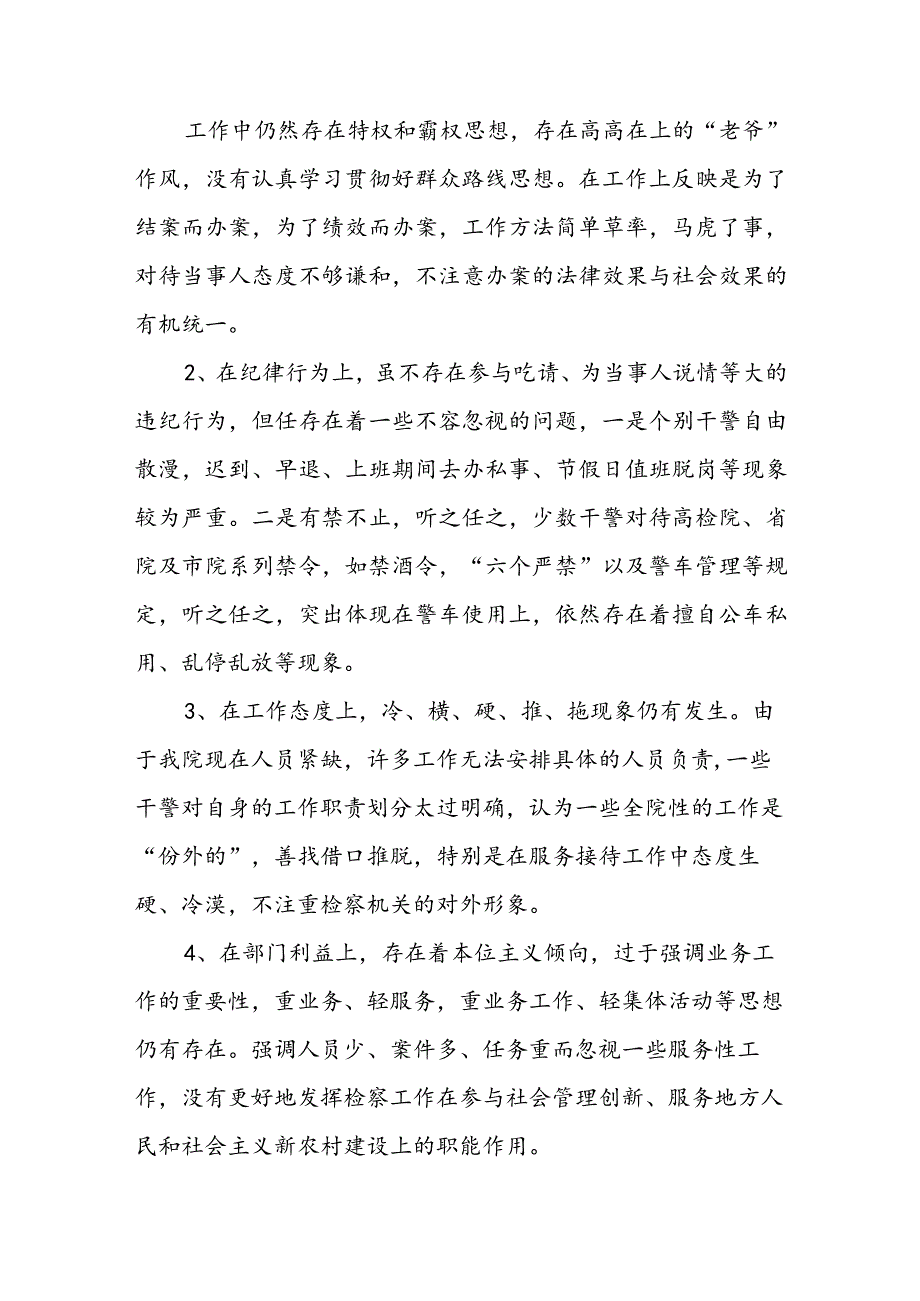 工作中仍然存在特权和霸权思想，存在高高在上的“老爷”
作风，没有认真学习贯彻好群众路线思想。在工作上反映是为了
结案而办案，为了绩效而办案，工作方法简单草率，马虎了事，
对待当事人态度不够谦和，不注意办案的法律效果与社会效果的
有机统一。
2、在纪律行为上，虽不存在参与吃请、为当事人说情等大的
违纪行为，但任存在着一些不容忽视的问题，一是个别干警自由
散漫，迟到、早退、上班期间去办私事、节假日值班脱岗等现象
较为严重。二是有禁不止，听之任之，少数干警对待高检院、省
院及市院系列禁令，如禁酒令，“六个严禁”以及警车管理等规
定，听之任之，突出体现在警车使用上，依然存在着擅自公车私
用、乱停乱放等现象。
3、在工作态度上，冷、横、硬、推、拖现象仍有发生。由
于我院现在人员紧缺，许多工作无法安排具体的人员负责,一些
干警对自身的工作职责划分太过明确，认为一些全院性的工作是
“份外的”，善找借口推脱，特别是在服务接待工作中态度生
硬、冷漠，不注重检察机关的对外形象。
4、在部门利益上，存在着本位主义倾向，过于强调业务工
作的重要性，重业务、轻服务，重业务工作、轻集体活动等思想
仍有存在。强调人员少、案件多、任务重而忽视一些服务性工
作，没有更好地发挥检察工作在参与社会管理创新、服务地方人
民和社会主义新农村建设上的职能作用。